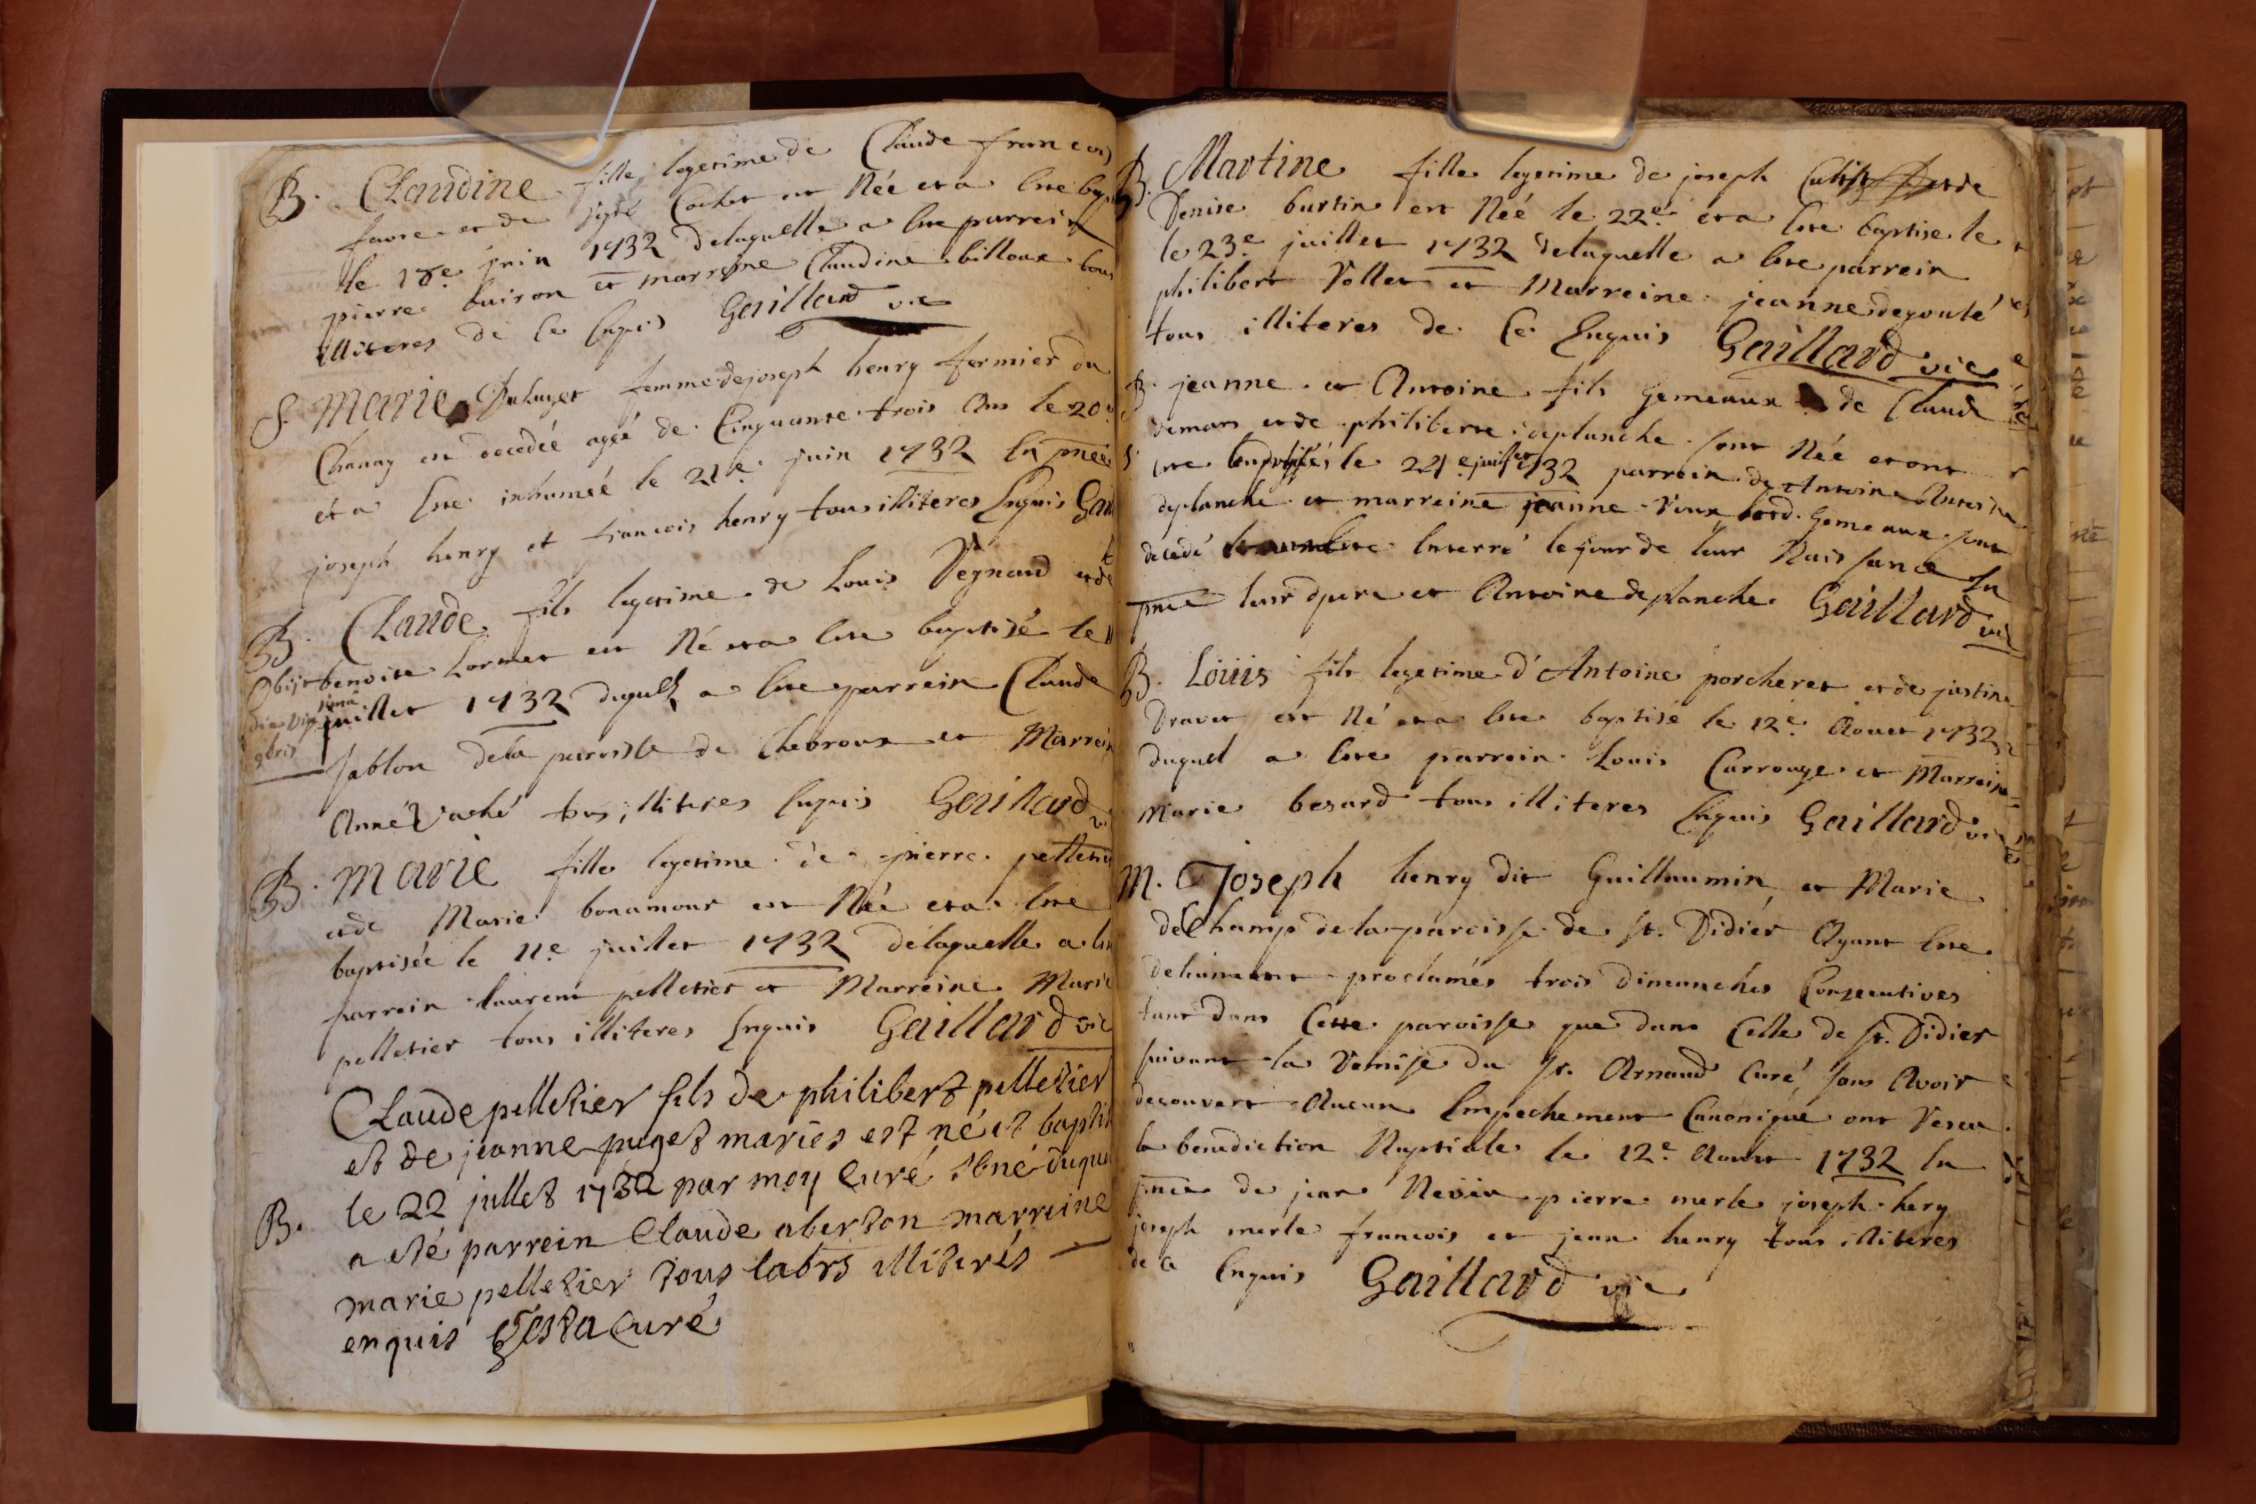 B. Claudine fille legetime de Claude francois
favre et de Cochet est Née et a bte bap
le 18e juin 1732 delaquelle a bte parrein
pierre buiron et marreine Claudine billoux tous
illiteres de Ce Enquis Gaillard vic
S. Marie femme de joseph henry fermier du
Chanay est decedée aggé de Cinquante trois Ans le 20e
et a bte inhumeé le 21e juin 1732 En pnce
joseph henry et francois henry tous illiteres Enquis Gail
B. Claude fils legetime de Louis Vegnaud et de
benoite Lormet est Né et a bte baptisé le
juillet 1732 duquel a bte parrein Claude
Sablon dela paroisse de Chevroux et Marrein
Anne Vaché tous illiteres Enquis Gaillard
obijt
B. Marie fille legetime de pierre pelletie
et de Marie bonamour est Née et a bte
baptisée le 11e juillet 1732 delaquelle a bte
parrein laurent pelletier et Marreine Marie
pelletier tous illiteres Enquis Gaillard vic
Claude pelletier fils de philibert pelletier
et de jeanne puget mariés est né et baptis
B. le 22 jullet 1732 par moy Curé sbné duquel
a eté parrein Claude aberton marreine
marie pelletier tous labrs illiterés
enquis Curé
B. Martine fille legetime de joseph et de
Denise burtin est Néé le 22e et a bte baptise le
le 23e juillet 1732 delaquelle a bte parrein
philibert Vollet et Marreine jeanne degouté
tous illiteres de Ce Enquis Gaillard vic
B. jeanne et Antoine fils gemeaux de Claude
demars et de philiberte deplanche sont Néé et ont
bte le 24e juillet 1732 parrein de Antoine Antoine
deplanche et marreine jeanne Voux gemeaux sont
decedé Enterré le jour de leur Naissance En
pnce leur dpere et Antoine deplanche Gaillard vic
B. Louis fils legetime d'Antoine porcheret et de justine
Dravet est Né et a bte baptisé le 12e Aoust 1732
duquel a bte parrein Louis Carrouge et Marreine
Marie besard tous illiteres Enquis Gaillard vic
M. Joseph henry dit Guillaumin et Marie
deChamp de la paroisse de St. Didier Ayant bte
dehument proclamés trois dimanches Consecutives
tant dans Cette paroisse que dans Celle de St. Didier
suivant la Remise du Sr. Arnaud Curé, sans Avoir
decouvert Aucun Empechement Canonique ont Receu
la benediction Nuptiale le 12e Aoust 1732 En
pnce de jean Nevin pierre merle joseph hery
joseph merle francois et jean henry tous illiteres
de Ce Enquis Gaillard vic